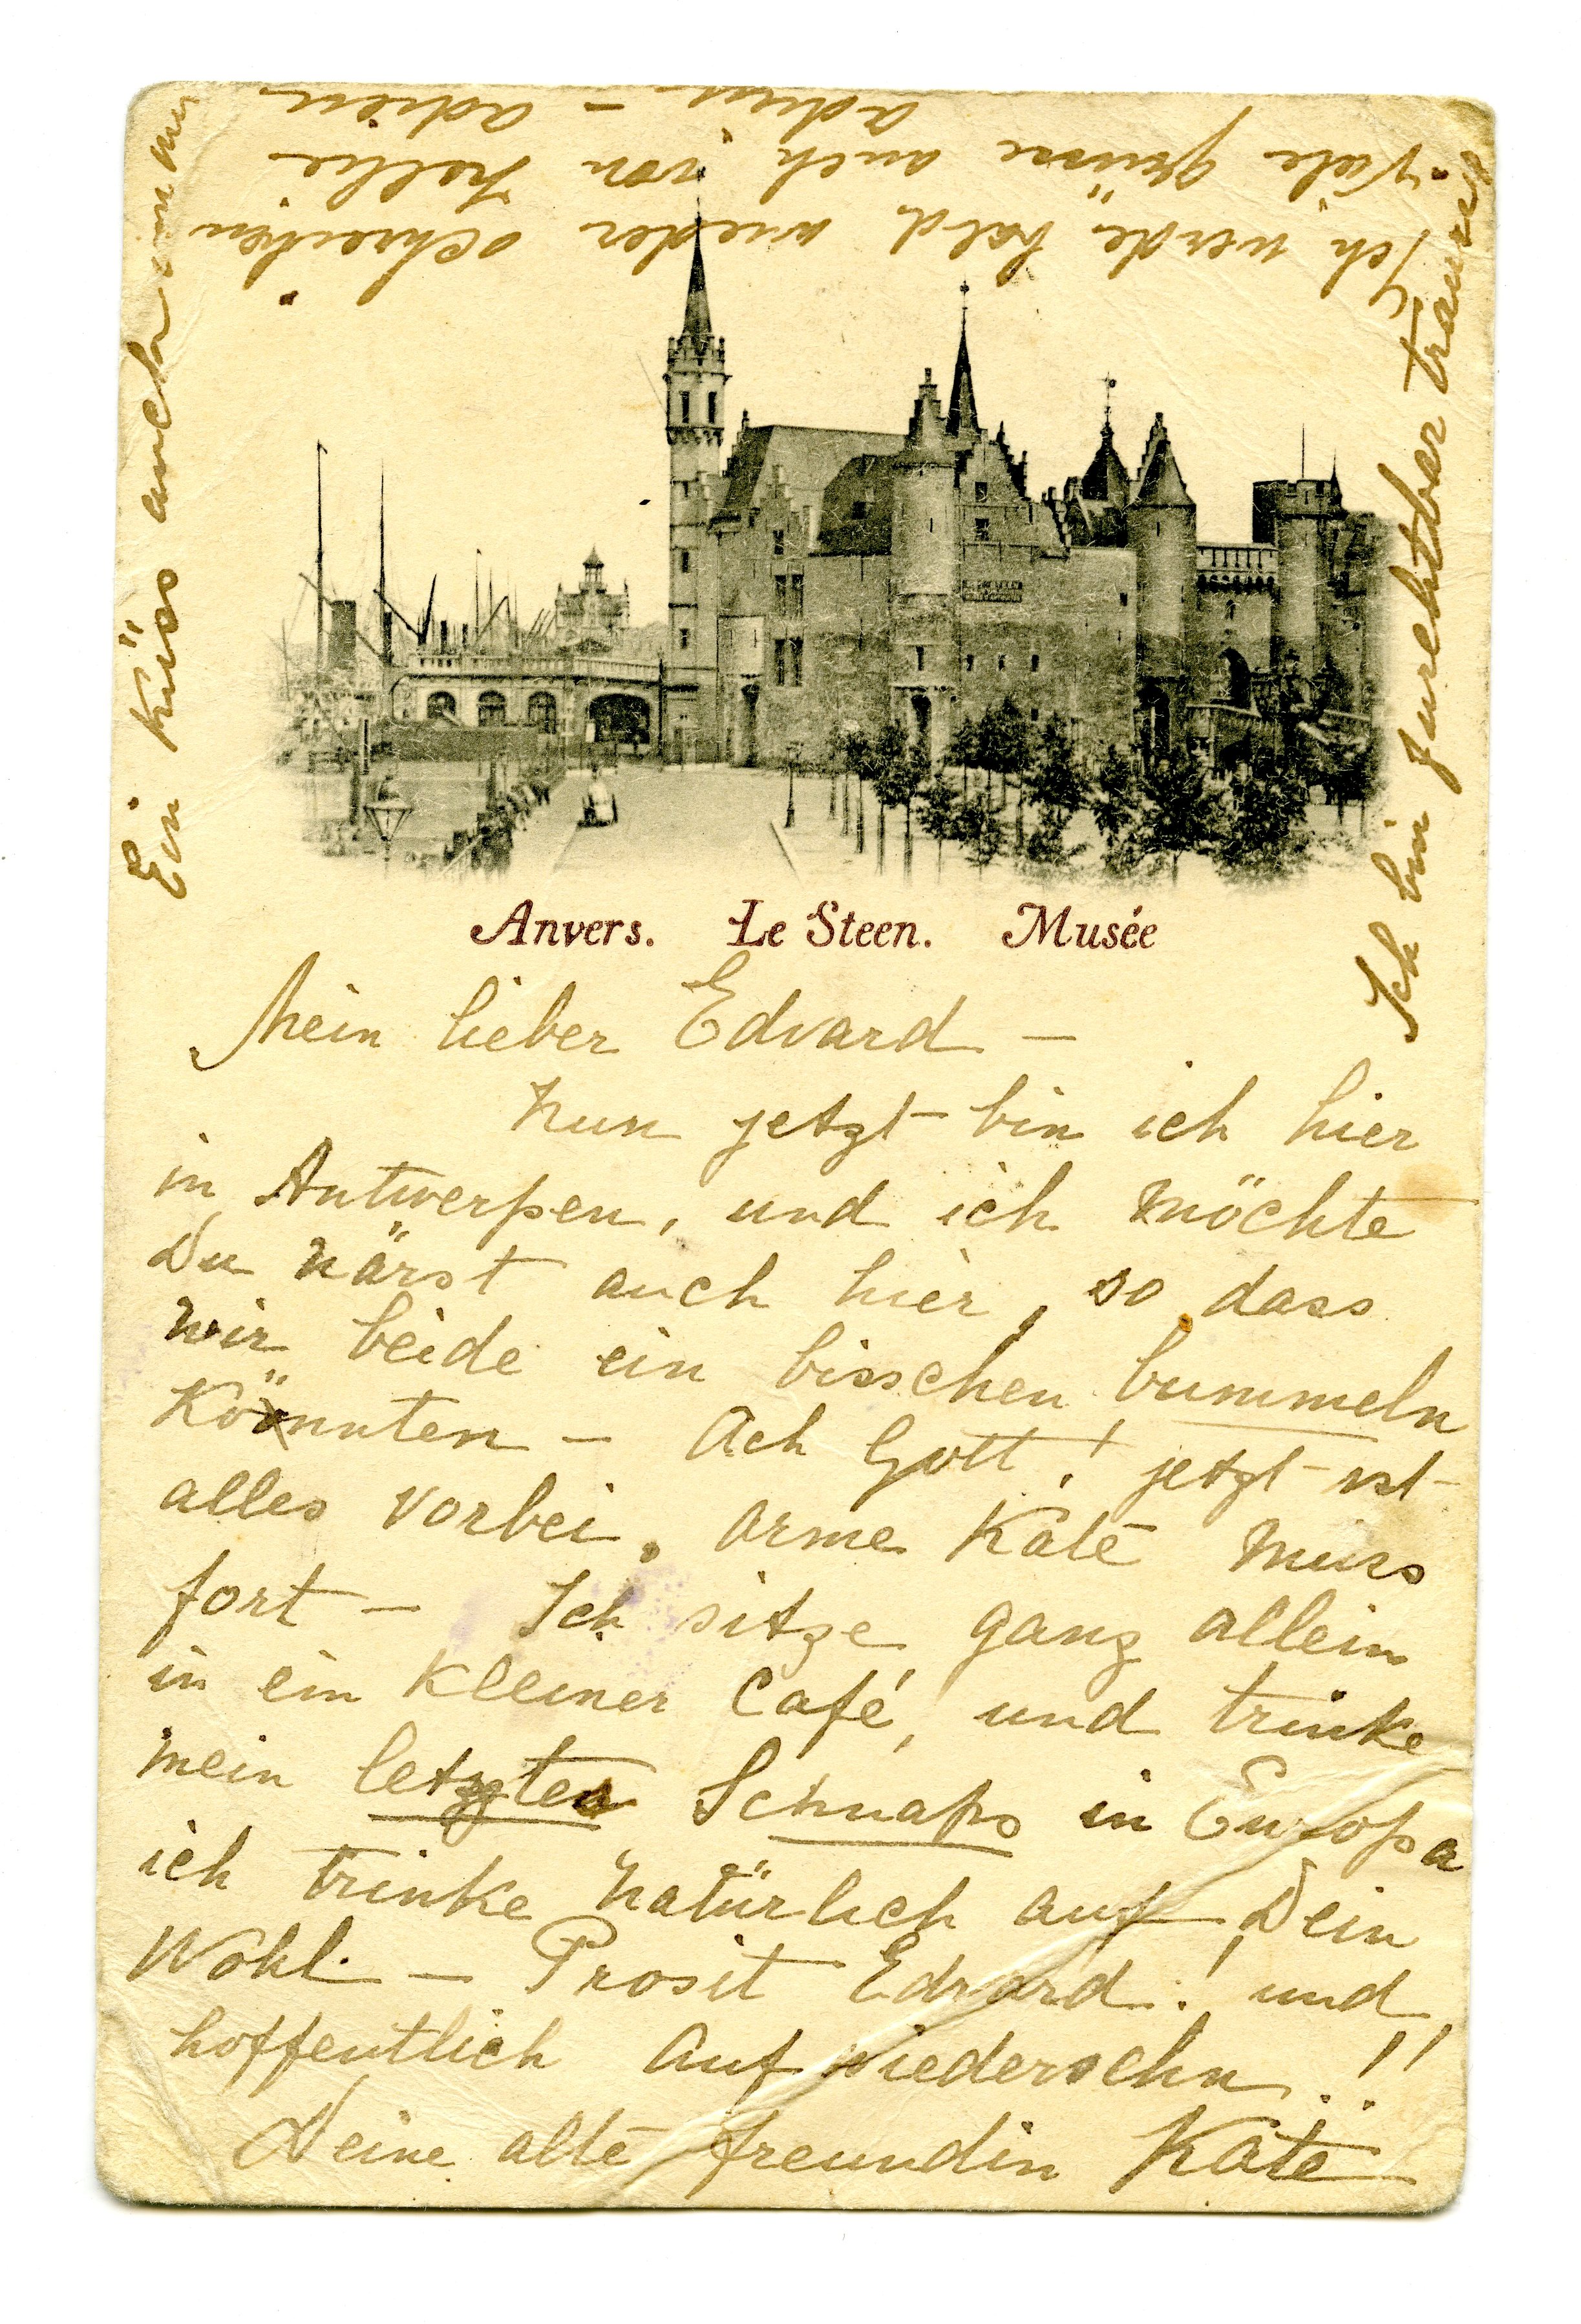 Anvers. Le Steen. Musée
Mein lieber Edvard —
Nun jetzt bin ich hier
in Antwerpen, und ich möchte
Du wärst auch hier, so dass
wir beide ein bisschen bummeln
könnten — Ach Gott! jetzt ist
alles vorbei, arme Kate muss
fort — Ich sitze ganz allein
in ein kleiner Café, und trinke
mein letzten Schnaps in Europa
ich trinke natürlich auf Dein
Wohl — Prosit Edvard! und
hoffentlich Auf wiedersehn!!
Deine alte freundin Kate
Ich bin furchtbar
Ich werde bald wieder schreiben
Viele grüsse auch von
adieu — adieu
Ein küss auch von mir